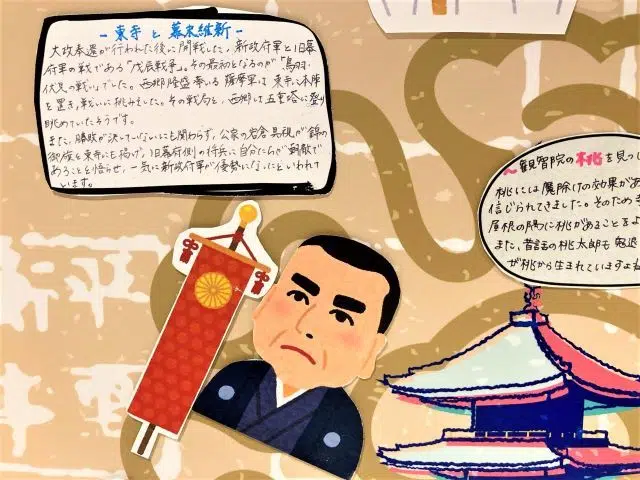 - 東寺と幕末維新 -
大政奉還が行われた後に開戦した、新政府軍と旧幕
府軍の戦である「戊辰戦争」。その最初となるのが「鳥羽・
伏見の戦い」でした。西郷隆盛率いる薩摩軍は東寺に本陣
を置き、戦いに挑みました。その戦局を、西郷は五重塔に登り
眺めていたそうです。
また、勝敗が決していないにも関わらず、公家の岩倉具視が錦の
御旗を東寺にも掲げ、旧幕府側の将兵に自分たちが朝敵で
あることを悟らせ、一気に新政府軍が優勢になったといわれて
います。
~観智院の桃を見つ
桃には魔除けの効果があ
信じられてきました。そのため
屋根の隅に桃があることを
また、昔話の桃太郎も鬼退
ぜ桃から生まれていますよね